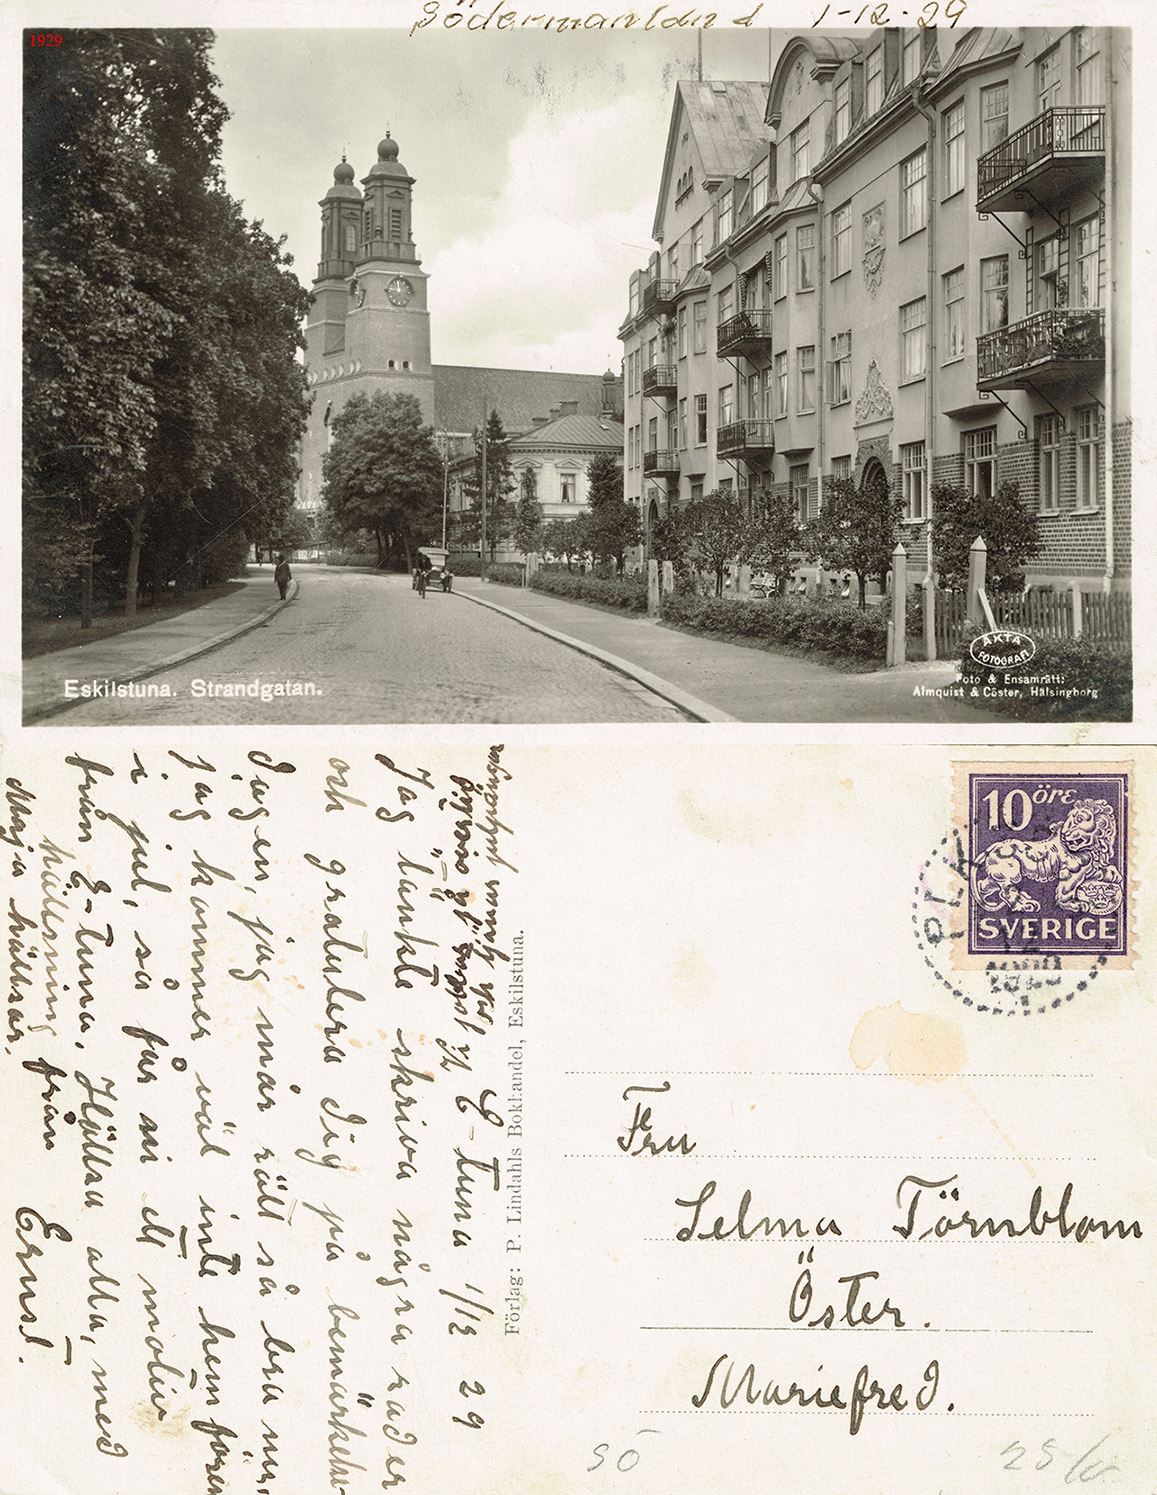 Södermanland 1-12-29
1929
Eskilstuna. Strandgatan.
ÄKTA
FOTOGRAFI
Foto & Ensamrätt:
Almquist & Cöster, Hälsingborg
E-tuna 1/12 29
Jag tänkte skriva några rader
och gratulera Dig på bemärkelse-
dagen, jag mår rätt så bra nu,
jag kommer väl inte hem förrän
i jul, så får ni ett motiv
från E-tuna. Hälsa alla, med
hälsning från Ernst.
Maja hälsar.
Förlag: P. Lindahls Bokhandel, Eskilstuna.
10 öre
SVERIGE
PLK
1929
Fru
Selma Törnblom
Öster.
Mariefred.
SÖ